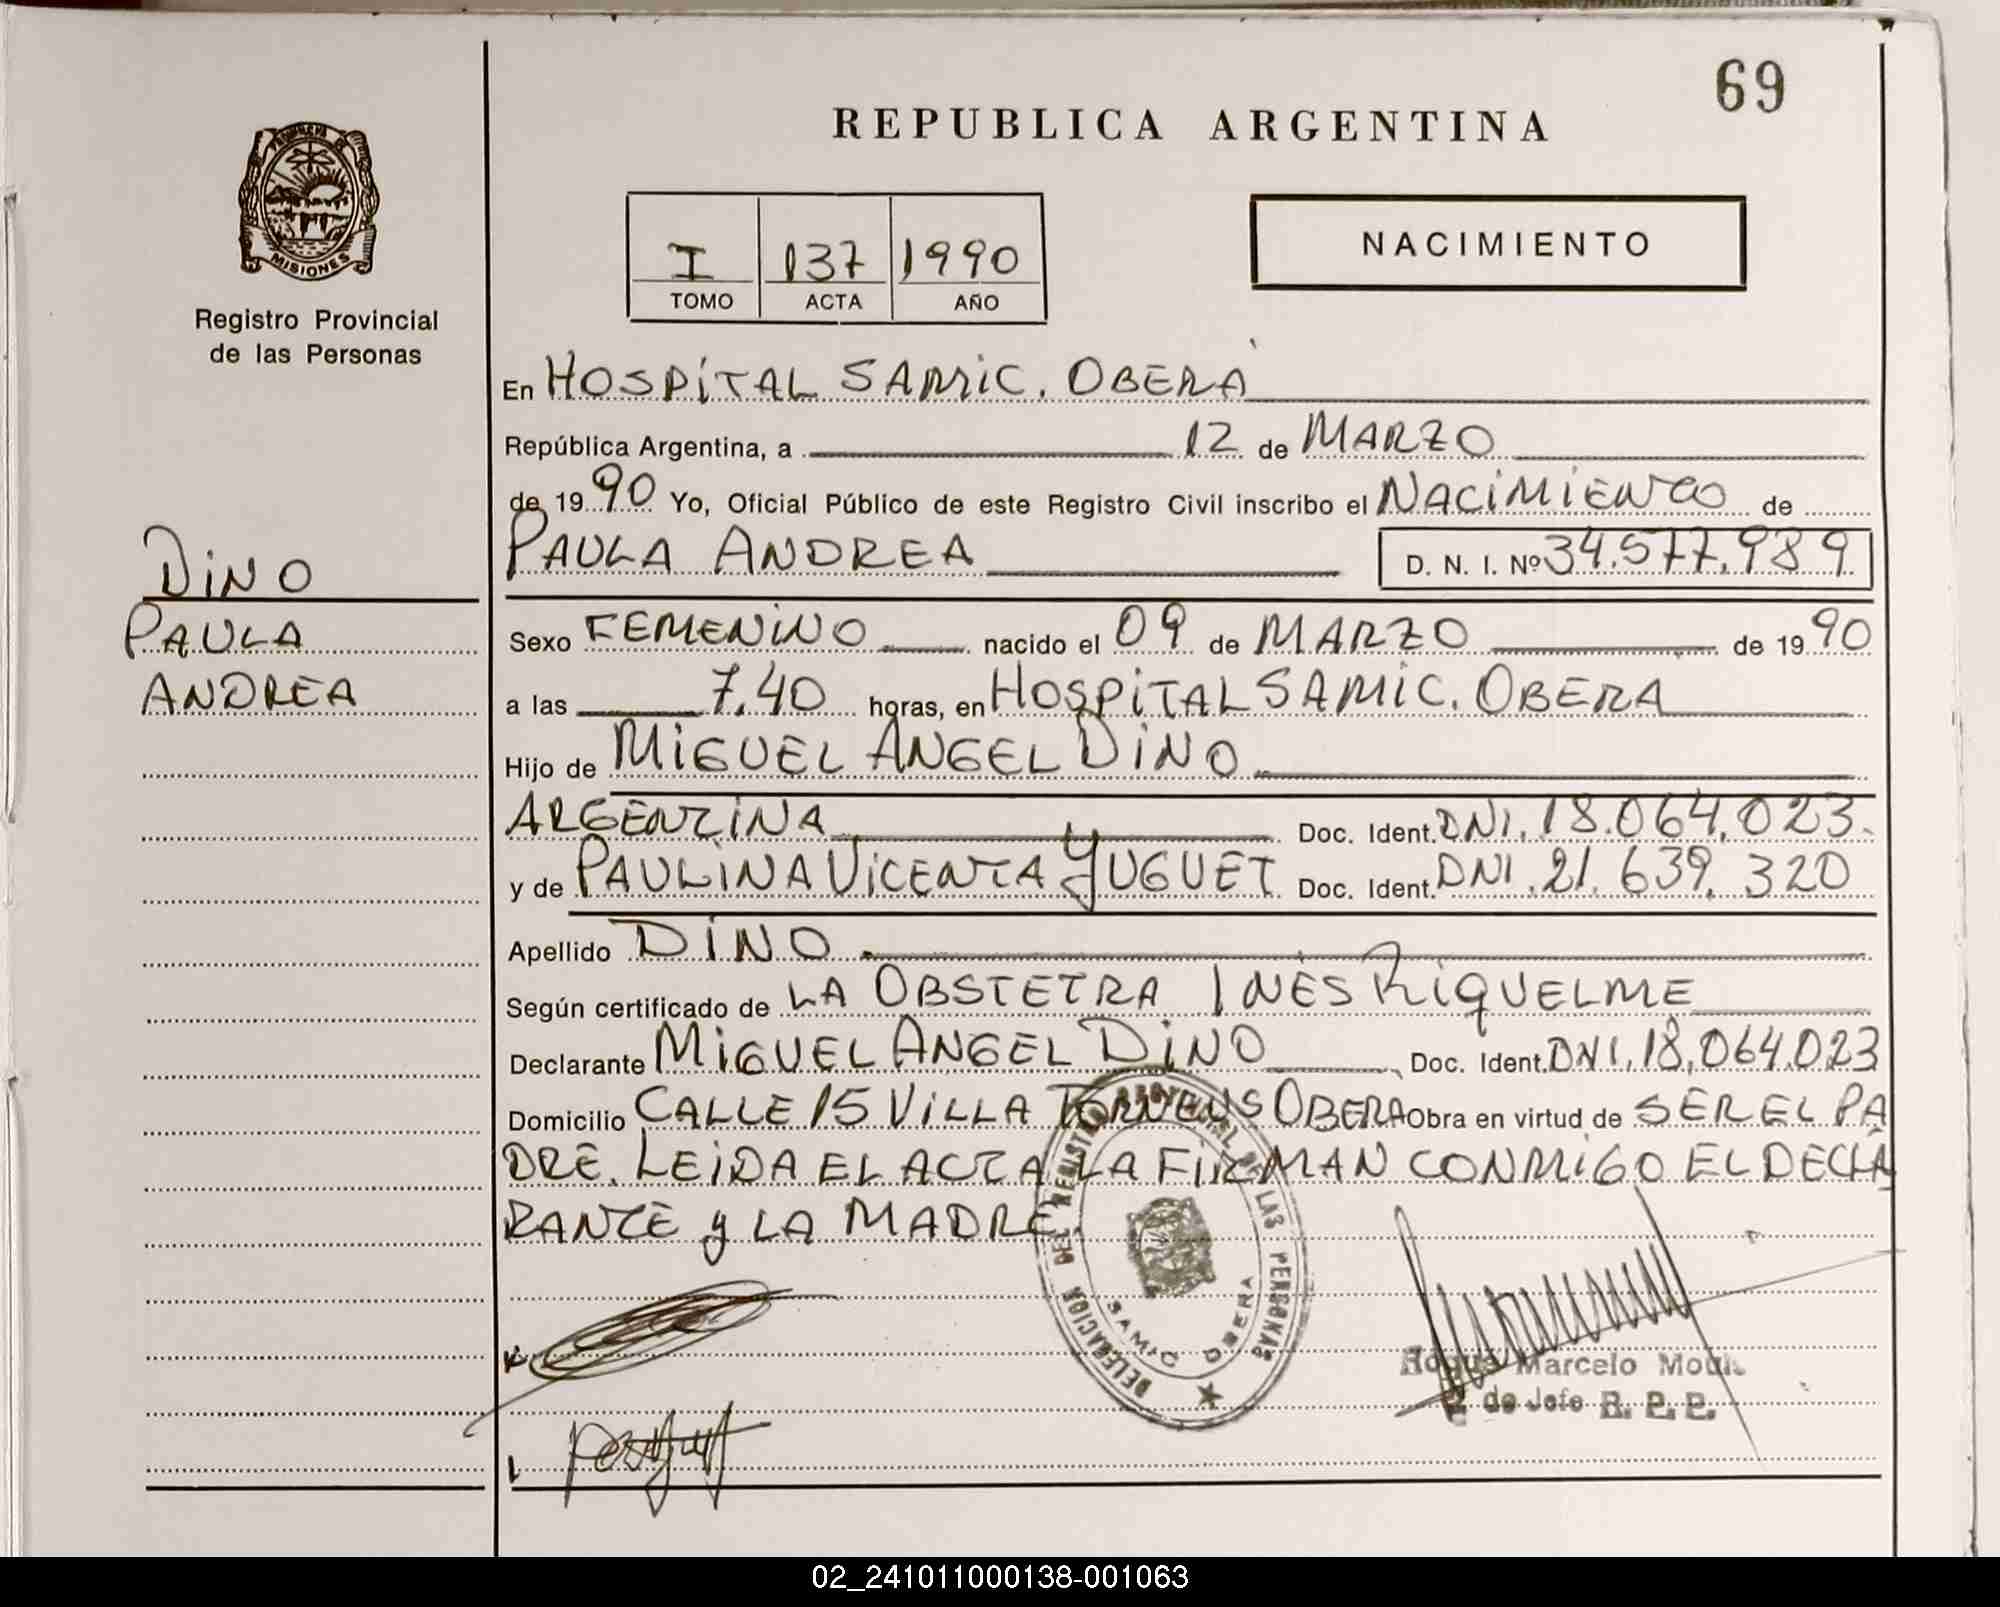 69
REPUBLICA ARGENTINA
PROVINCIA DE
MISIONES
Registro Provincial
de las Personas
I 137 1990
TOMO ACTA AÑO
NACIMIENTO
En HOSPITAL SAMIC. OBERÁ
República Argentina, a 12 de MARZO
de 1990 Yo, Oficial Público de este Registro Civil inscribo el NACIMIENTO de
PAULA ANDREA D. N. I. Nº 34.577.989
DINO
PAULA
ANDREA
Sexo FEMENINO nacido el 09 de MARZO de 1990
a las 7,40 horas, en HOSPITAL SAMIC. OBERA
Hijo de MIGUEL ANGEL DINO
ARGENTINA Doc. Ident. DNI. 18.064.023.
y de PAULINA VICENTA YUGUET Doc. Ident. DNI. 21.639.320
Apellido DINO.
Según certificado de LA OBSTETRA INÉS RIQUELME
Declarante MIGUEL ANGEL DINO Doc. Ident. DNI. 18.064.023
Domicilio CALLE 15 VILLA TORNEUS OBERA Obra en virtud de SER EL PA
DRE. LEIDA EL ACTA LA FIRMAN CONMIGO EL DECLA
RANTE y LA MADRE.
DELEGACION DEL REGISTRO PROVINCIAL DE LAS PERSONAS
SAMIC OBERA
Marcelo
de Jefe R. P. P.
02_241011000138-001063